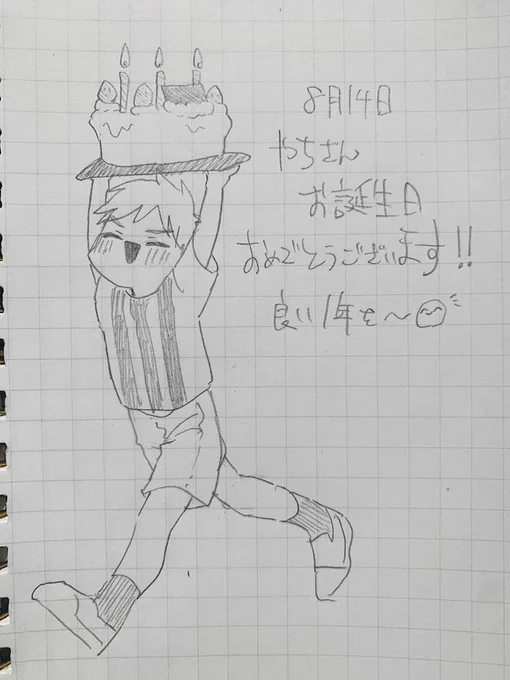 8月14日
やちさん
お誕生日
おめでとうございます!!
良い1年を〜